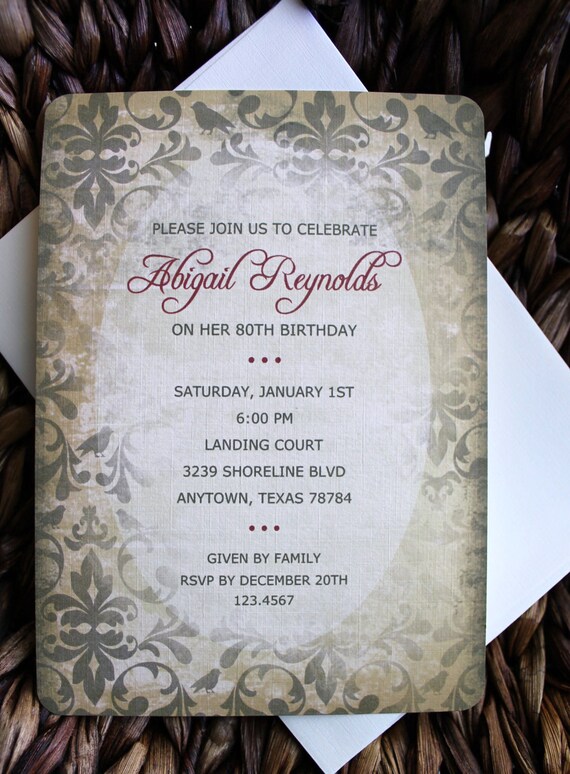 PLEASE JOIN US TO CELEBRATE
Abigail Reynolds
ON HER 80TH BIRTHDAY
SATURDAY, JANUARY 1ST
6:00 PM
LANDING COURT
3239 SHORELINE BLVD
ANYTOWN, TEXAS 78784
GIVEN BY FAMILY
RSVP BY DECEMBER 20TH
123.4567